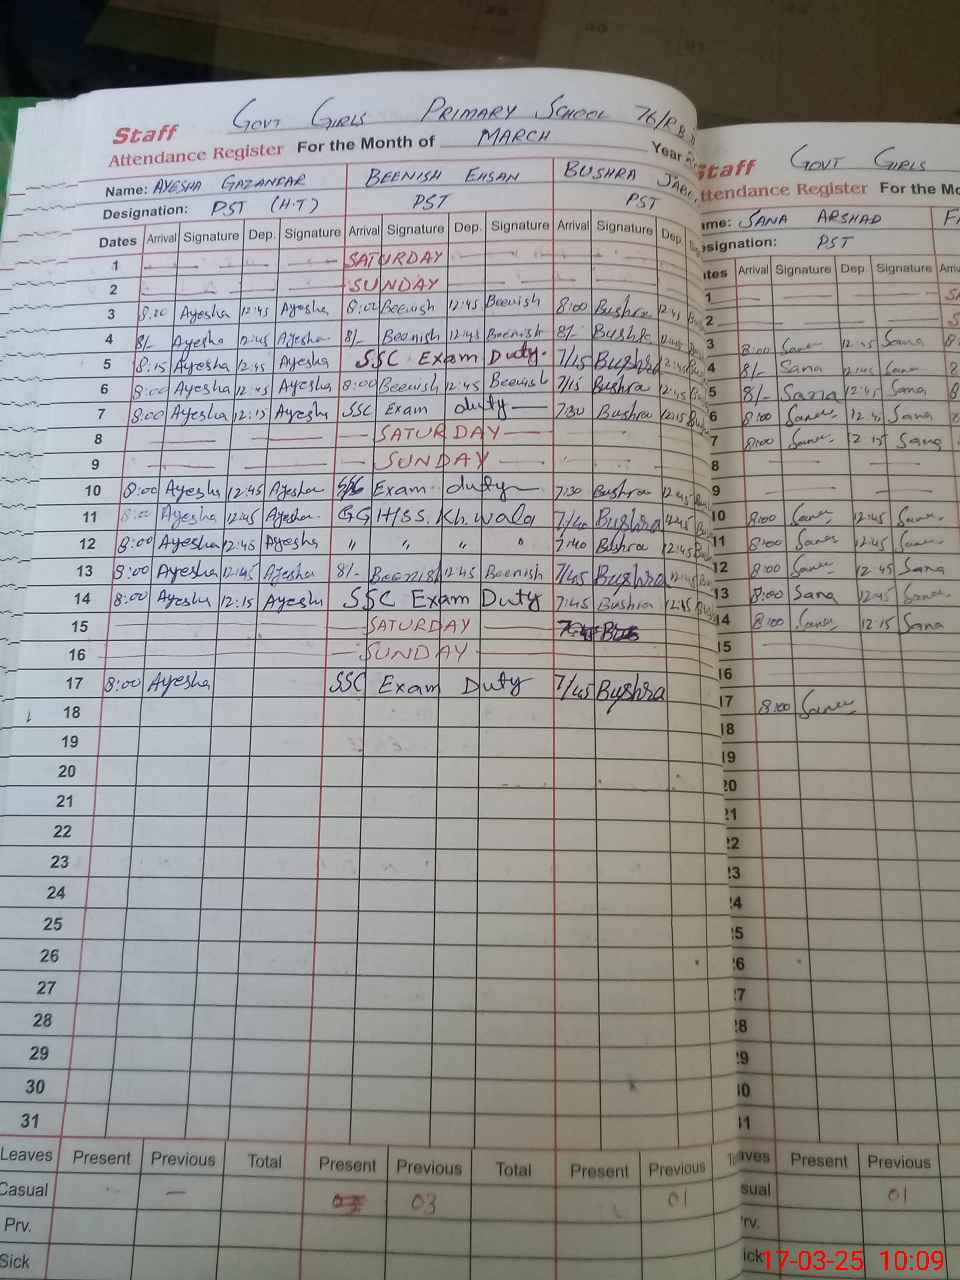 GOVT GIRLS PRIMARY SCHOOL 76/RB
Staff
Attendance Register For the Month of MARCH Year
Name: AYESHA GAZANFAR BEENISH EHSAN BUSHRA
Designation: PST (H.T) PST PST
Dates Arrival Signature Dep. Signature Arrival Signature Dep. Signature Arrival Signature Dep.
1 SATURDAY
2 SUNDAY
3 8:00 Ayesha 12:45 Ayesha 8:00 Beenish 12:45 Beenish 8:00 Bushra 12:45
4 8/- Ayesha 12:45 Ayesha 8/- Beenish 12:45 Beenish 8/- Bushra 12:45
5 8:15 Ayesha 12:45 Ayesha SSC Exam Duty. 7/45 Bushra 12:45
6 8:00 Ayesha 12:45 Ayesha 8:00 Beenish 12:45 Beenish 7/15 Bushra 12:45
7 8:00 Ayesha 12:15 Ayesha SSC Exam duty 7:30 Bushra 12:15
8 SATURDAY
9 SUNDAY
10 8:00 Ayesha 12:45 Ayesha Exam duty 7:30 Bushra 12:45
11 8:00 Ayesha 12:45 Ayesha GGHSS. Kh.wala 7/40 Bushra 12:45
12 8:00 Ayesha 12:45 Ayesha " " " " 7:40 Bushra 12:45
13 8:00 Ayesha 12:45 Ayesha 8/- Beenish 12:45 Beenish 7/45 Bushra 12:45
14 8:00 Ayesha 12:15 Ayesha SSC Exam Duty 7:45 Bushra
15 SATURDAY
16 SUNDAY
17 8:00 Ayesha SSC Exam Duty 7/45 Bushra
18
19
20
21
22
23
24
25
26
27
28
29
30
31
Leaves Present Previous Total Present Previous Total Present Previous
Casual — 03 01
Prv.
Sick
GOVT GIRLS
Staff
Attendance Register For the Mo
Name: SANA ARSHAD
Designation: PST
Dates Arrival Signature Dep. Signature
1
2
3 8:00 Sana 12:45 Sana
4 8/- Sana 12:45 Sana
5 8/- Sana 12:45 Sana
6 8:00 Sana 12:45 Sana
7 8:00 Sana 12:15 Sana
8
9
10 8:00 Sana 12:45 Sana
11 8:00 Sana 12:45 Sana
12 8:00 Sana 12:45 Sana
13 8:00 Sana 12:45 Sana
14 8:00 Sana 12:15 Sana
15
16
17 8:00 Sana
18
19
20
21
22
23
24
25
26
27
28
29
30
31
Leaves Present Previous
Casual 01
Prv.
Sick
17-03-25 10:09